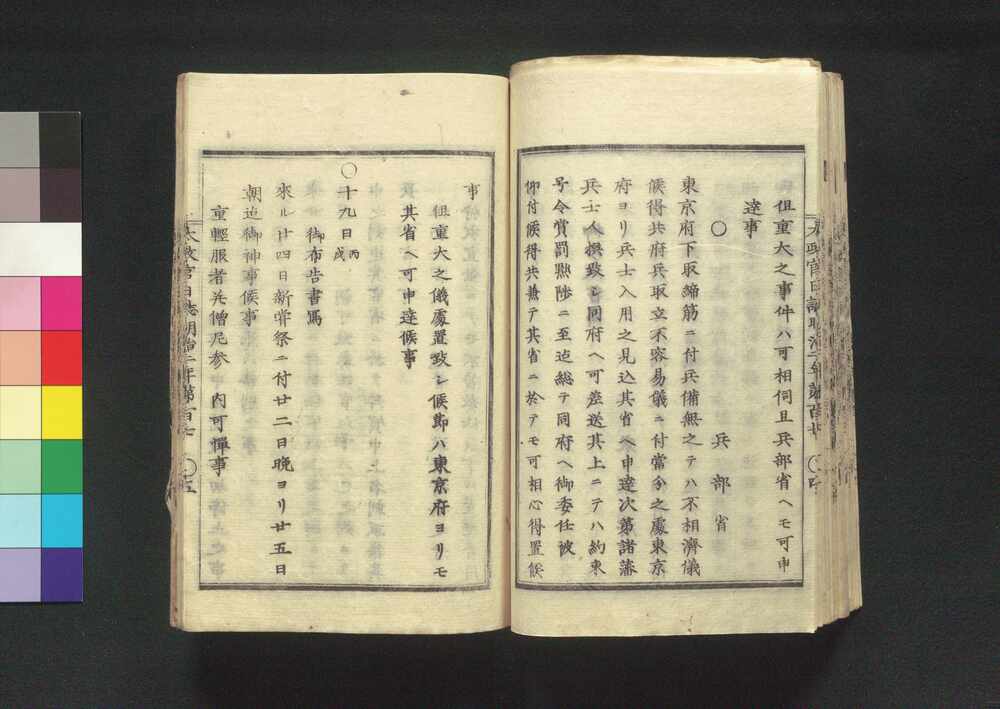 但重大之事件ハ可相伺且兵部省ヘモ可申
達事
〇兵部省
東京府下取締筋ニ付兵備無之テハ不相濟儀
候得共府兵取立不容易儀ニ付當分之處東京
府ヨリ兵士入用之見込其省ヘ申達次第諸藩
兵士人撰致シ同府ヘ可差送其上ニテハ約束
号令賞罰黜陟ニ至迠総テ同府ヘ御委任被
仰付候得共兼テ其省ニ於テモ可相心得置候
事
但重大之儀處置致シ候節ハ東京府ヨリモ
其省ヘ可申達候事
〇十九日丙戌
御布告書寫
來ル廿四日新甞祭ニ付廿二日晩ヨリ廿五日
朝迠御神事候事
重輕服者并僧尼参 内可憚事
太政官日誌明治二年第百七 〇五